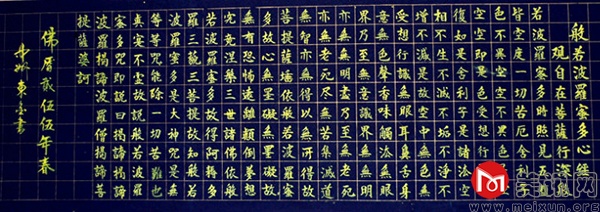 般若波羅蜜多心經
觀自在菩薩行深般
若波羅蜜多時照見五蘊
皆空度一切苦厄舍利子
色不異空空不異色色即
是空空即是色受想行識
亦復如是舍利子是諸法
空相不生不滅不垢不淨
不增不減是故空中無色
無受想行識無眼耳鼻舌身
意無色聲香味觸法無眼
界乃至無意識界無無明
亦無無明盡乃至無老死
亦無老死盡無苦集滅道
無智亦無得以無所得故
菩提薩埵依般若波羅蜜
多故心無罣礙無罣礙故
無有恐怖遠離顛倒夢想
究竟涅槃三世諸佛依般
若波羅蜜多故得阿耨多
羅三藐三菩提故知般若
波羅蜜多是大神咒是大明咒是無
上咒是無等等咒能除一切苦
真實不虛故說般若波羅
蜜多咒即說咒曰揭諦揭諦
波羅揭諦波羅僧揭諦菩
提薩婆訶
佛曆貳伍伍年春
www.meixun.org